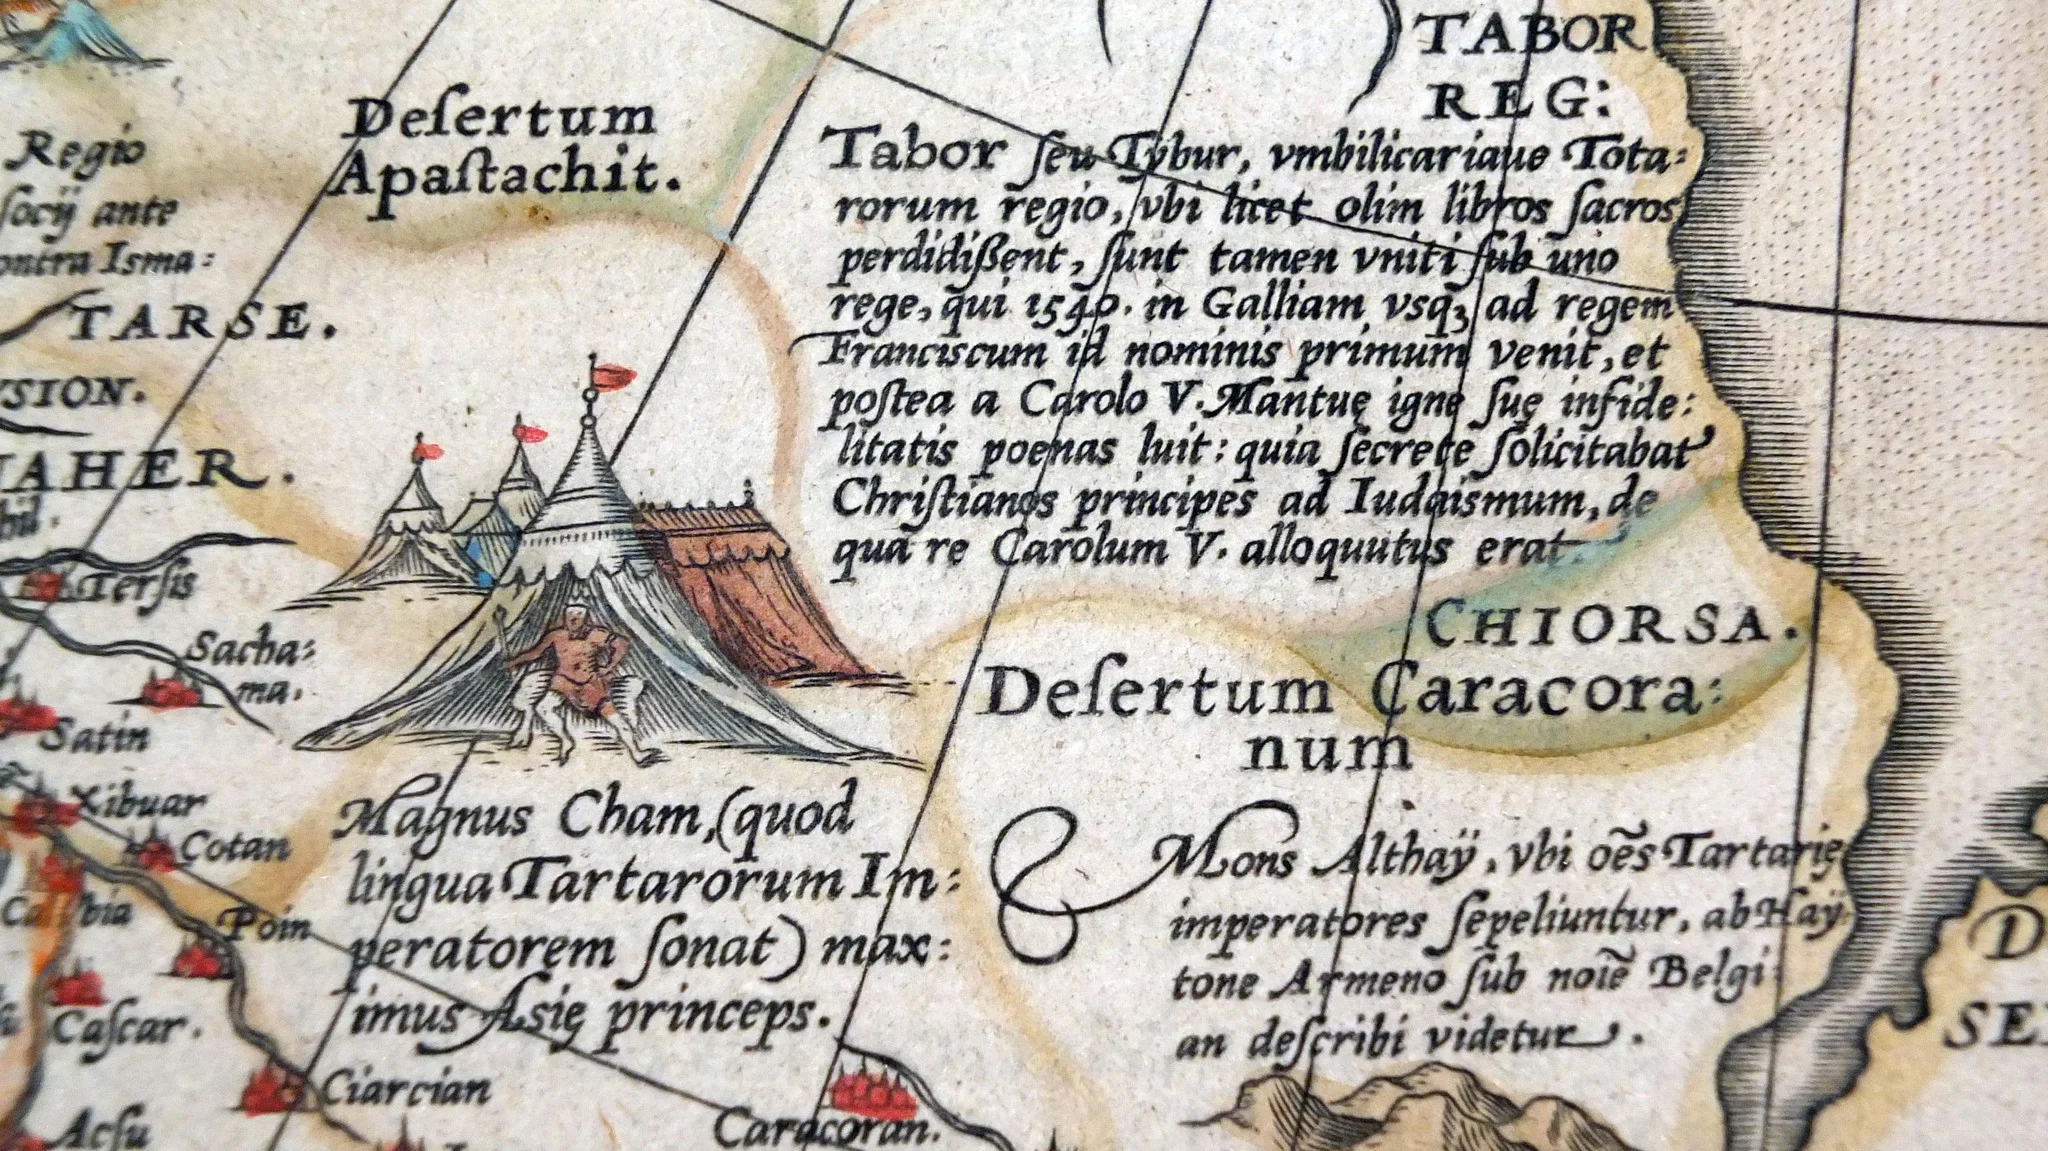 TABOR
REG:
Deſertum
Apaſtachit.
Tabor ſeu Tybur, vmbilicariaue Tota:
rorum regio, vbi licet olim libros ſacros
perdidißent, ſunt tamen vniti ſub uno
rege, qui 1540. in Galliam vsqꝫ ad regem
Franciscum id nominis primum venit, et
poſtea a Carolo V. Mantuę igne ſuę infide:
litatis poenas luit: quia ſecrete ſolicitabat
Chriſtianos principes ad Iudaismum, de
qua re Carolum V. alloquutus erat.
Regio
ſocij ante
ontra Isma:
TARSE.
YSION.
AHER.
Terſis
Sacha:
ma.
Satin
Xibuar
Cotan
Poin
Caſcar.
Ciarcian
Acſu
CHIORSA.
Deſertum Caracora:
num
Magnus Cham, (quod
lingua Tartarorum Im:
peratorem ſonat) max:
imus Asię princeps.
Mons Althaÿ, vbi oēs Tartarię
imperatores ſepeliuntur, ab Haÿ:
tone Armeno ſub noīe Belgi:
an deſcribi videtur.
Caracoran.
D
SE